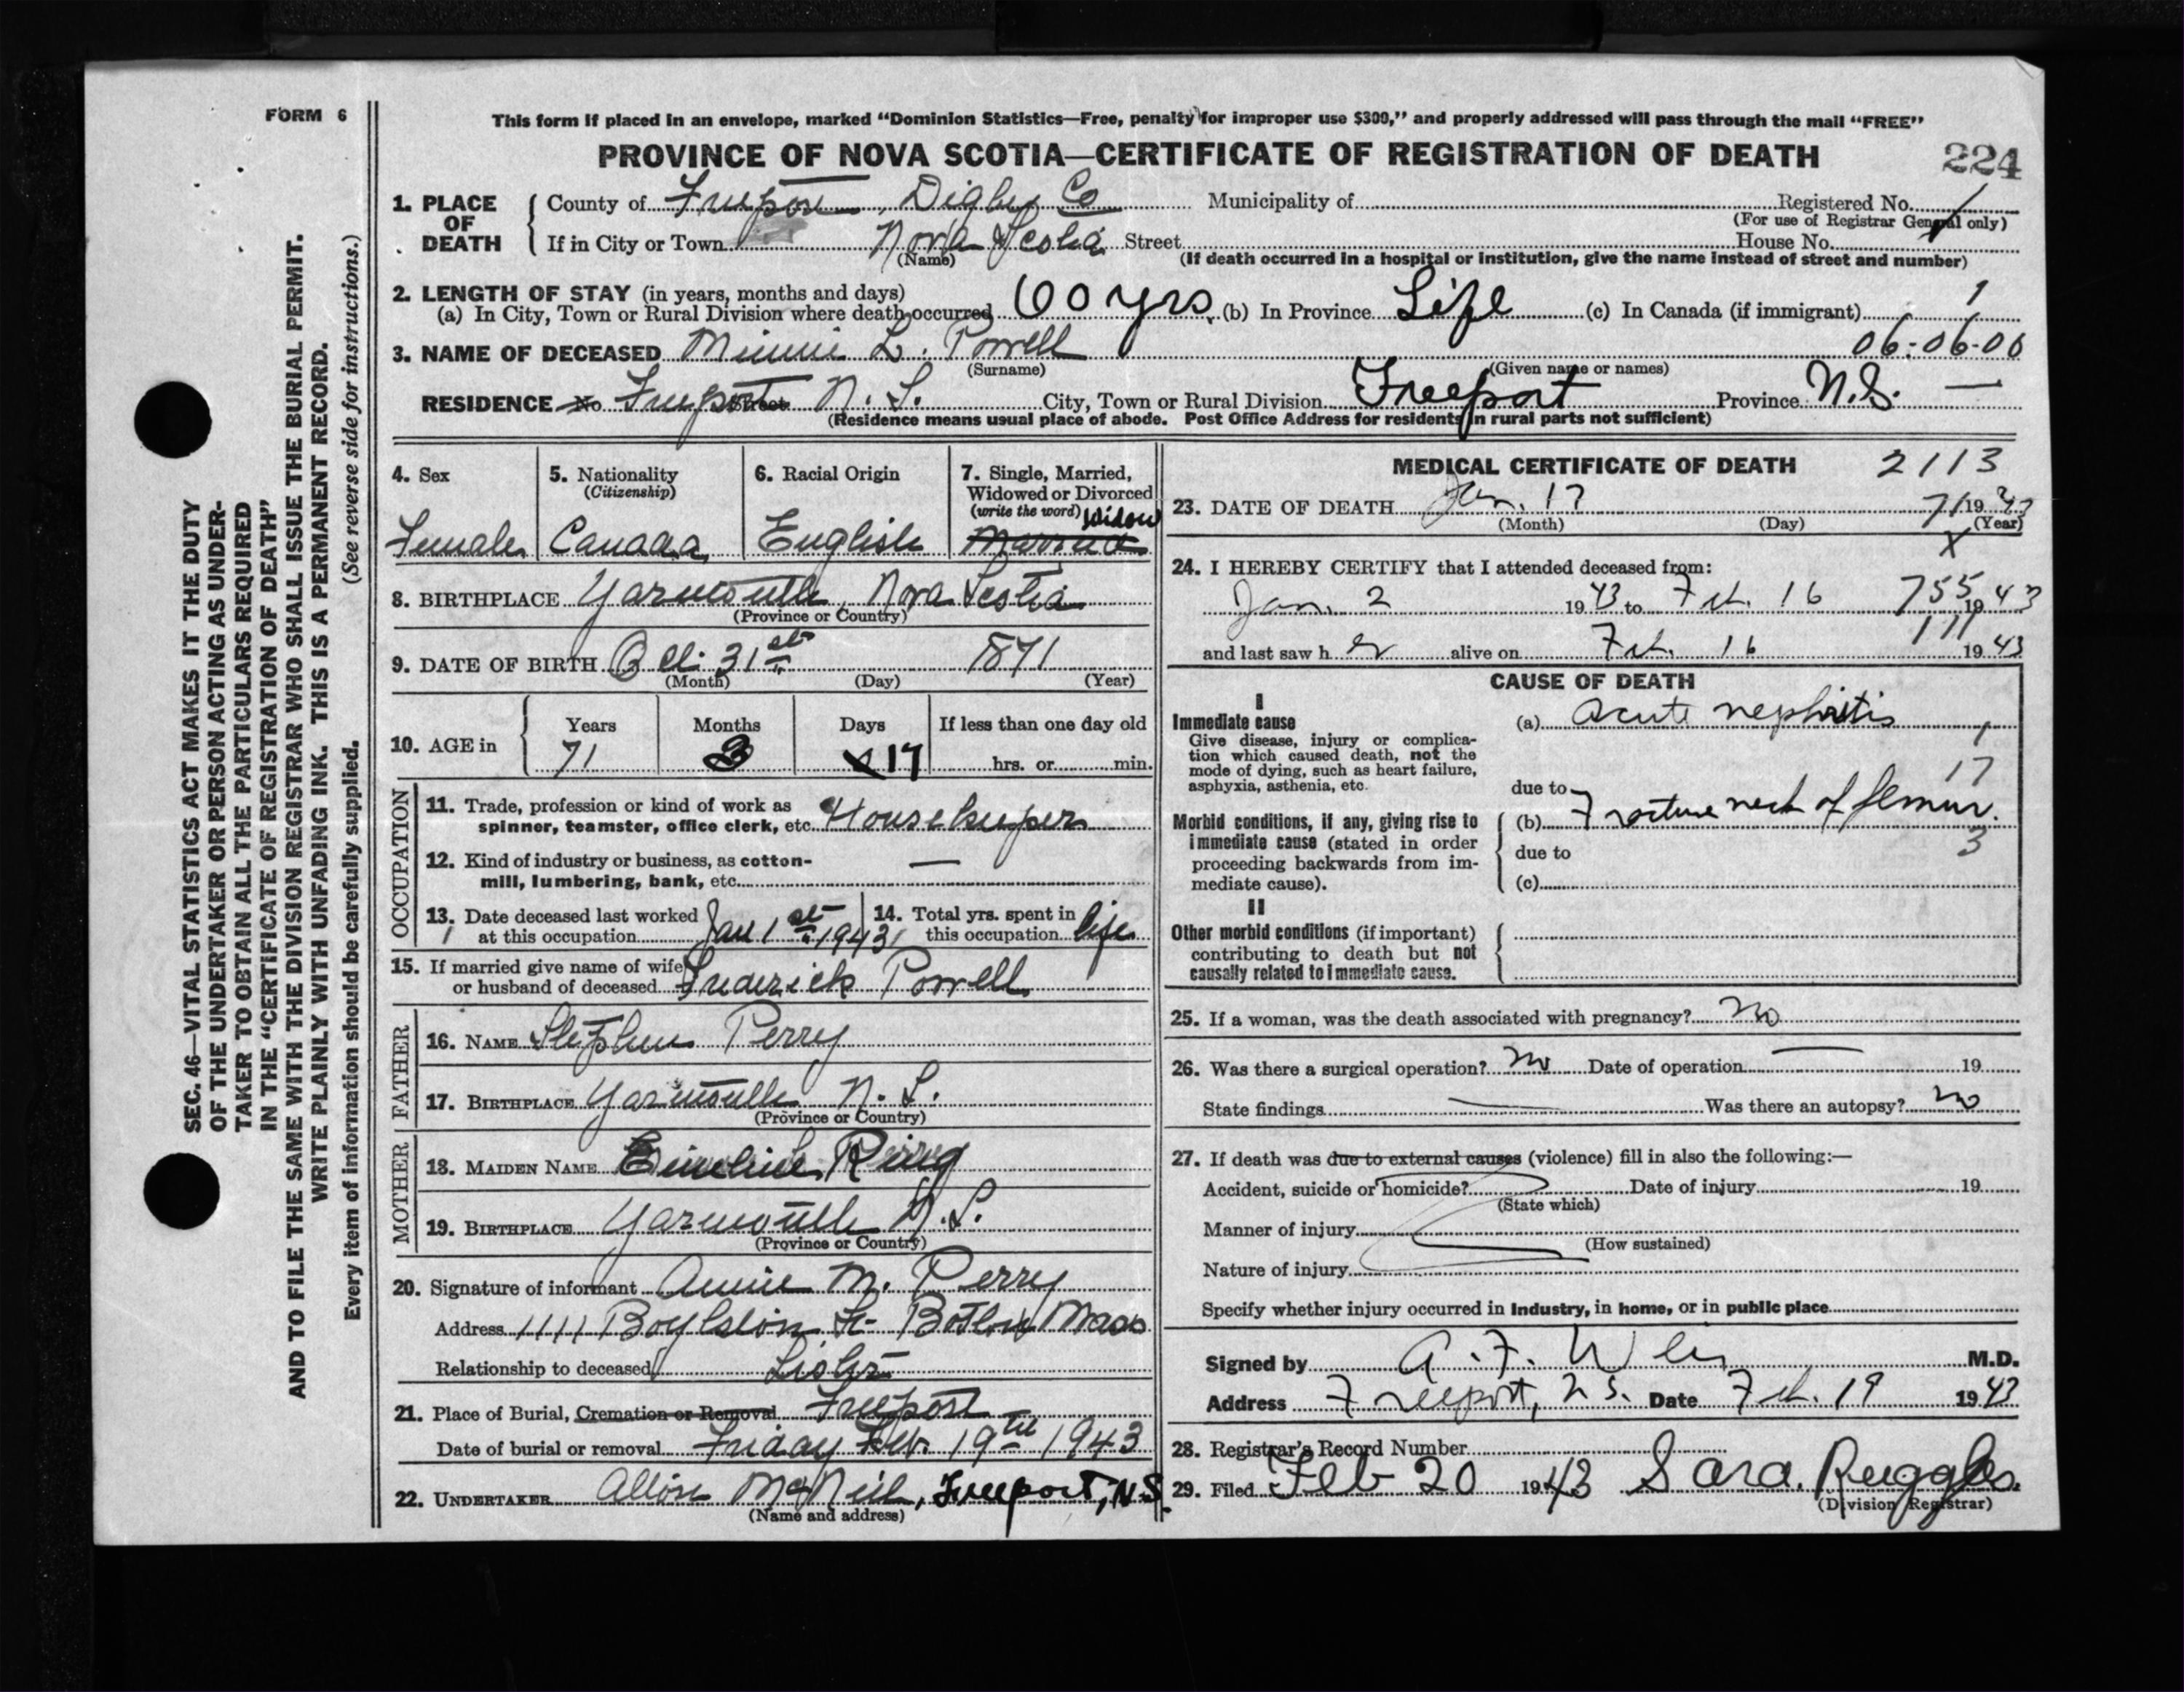 FORM 6
This form if placed in an envelope, marked “Dominion Statistics—Free, penalty for improper use $300,” and properly addressed will pass through the mail “FREE”
PROVINCE OF NOVA SCOTIA—CERTIFICATE OF REGISTRATION OF DEATH
224
1. PLACE OF DEATH
County of Freeport, Digby Co Municipality of Registered No.
(For use of Registrar General only)
If in City or Town Nova Scotia Street House No.
(Name) (If death occurred in a hospital or institution, give the name instead of street and number)
2. LENGTH OF STAY (in years, months and days)
(a) In City, Town or Rural Division where death occurred 60 yrs. (b) In Province Life (c) In Canada (if immigrant) 1
3. NAME OF DECEASED Minnie L. Powell 06-06-00
(Surname) (Given name or names)
RESIDENCE No Freeport Street N. S. City, Town or Rural Division Freeport Province N.S. —
(Residence means usual place of abode. Post Office Address for residents in rural parts not sufficient)
4. Sex
Female
5. Nationality
(Citizenship)
Canada
6. Racial Origin
English
7. Single, Married,
Widowed or Divorced
(write the word) Widow
Married
8. BIRTHPLACE Yarmouth, Nova Scotia
(Province or Country)
9. DATE OF BIRTH Oct. 31st 1871
(Month) (Day) (Year)
10. AGE in
Years Months Days If less than one day old
71 3 17 hrs. or min.
OCCUPATION
11. Trade, profession or kind of work as
spinner, teamster, office clerk, etc. Housekeeper
12. Kind of industry or business, as cotton-
mill, lumbering, bank, etc. —
13. Date deceased last worked
at this occupation Jan 1st 1943
14. Total yrs. spent in
this occupation life
15. If married give name of wife
or husband of deceased Frederick Powell
FATHER
16. NAME Stephen Perry
17. BIRTHPLACE Yarmouth N. S.
(Province or Country)
MOTHER
18. MAIDEN NAME Emeline Perry
19. BIRTHPLACE Yarmouth N.S.
(Province or Country)
20. Signature of informant Annie M. Perry
Address 1111 Boylston St- Boston Mass
Relationship to deceased Sister
21. Place of Burial, Cremation or Removal Freeport
Date of burial or removal Friday Feb. 19th 1943
22. UNDERTAKER McNeil, Freeport, N.S.
(Name and address)
MEDICAL CERTIFICATE OF DEATH 2113
23. DATE OF DEATH Jan. 17 71 1943
(Month) (Day) (Year)
X
24. I HEREBY CERTIFY that I attended deceased from:
Jan. 2 1943 to Feb. 16 755 1943
and last saw h er alive on Feb. 16 1943
CAUSE OF DEATH
I
Immediate cause
Give disease, injury or complica-
tion which caused death, not the
mode of dying, such as heart failure,
asphyxia, asthenia, etc.
(a) Acute nephritis
17
due to
Morbid conditions, if any, giving rise to
immediate cause (stated in order
proceeding backwards from im-
mediate cause).
(b) Fracture neck of femur.
due to 3
(c)
II
Other morbid conditions (if important)
contributing to death but not
causally related to immediate cause.
25. If a woman, was the death associated with pregnancy? no
26. Was there a surgical operation? no Date of operation — 19
State findings — Was there an autopsy? no
27. If death was due to external causes (violence) fill in also the following:—
Accident, suicide or homicide? Date of injury 19
(State which)
Manner of injury
(How sustained)
Nature of injury
Specify whether injury occurred in industry, in home, or in public place
Signed by A. F. M.D.
Address Freeport, N.S. Date Feb. 19 1943
28. Registrar's Record Number
29. Filed Feb 20 1943 Sara Ruggles
(Division Registrar)
SEC. 46—VITAL STATISTICS ACT MAKES IT THE DUTY
OF THE UNDERTAKER OR PERSON ACTING AS UNDER-
TAKER TO OBTAIN ALL THE PARTICULARS REQUIRED
IN THE “CERTIFICATE OF REGISTRATION OF DEATH”
AND TO FILE THE SAME WITH THE DIVISION REGISTRAR WHO SHALL ISSUE THE BURIAL PERMIT.
WRITE PLAINLY WITH UNFADING INK. THIS IS A PERMANENT RECORD.
Every item of information should be carefully supplied. (See reverse side for instructions.)